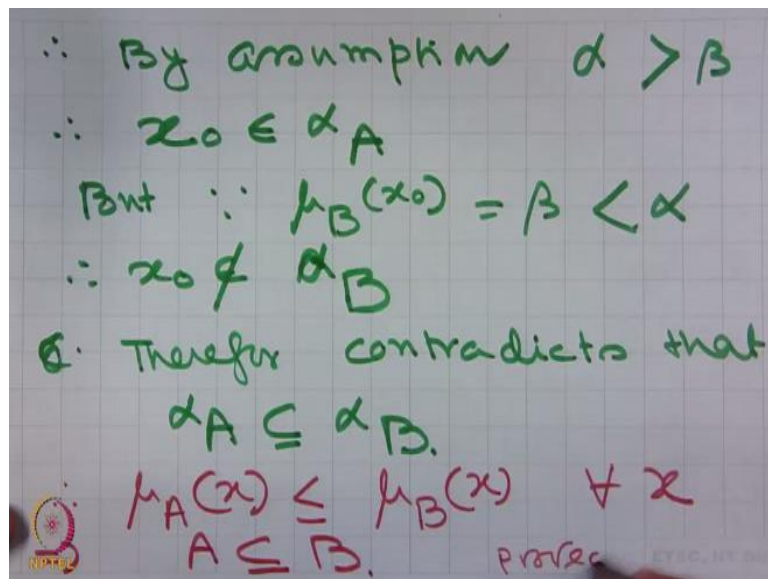 ∴ By assumption α > β
∴ x₀ ∈ αA
But ∵ μ_B(x₀) = β < α
∴ x₀ ∉ αB
Therefor contradicts that
αA ⊆ αB.
μ_A(x) ≤ μ_B(x) ∀ x
A ⊆ B. proved
NPTEL